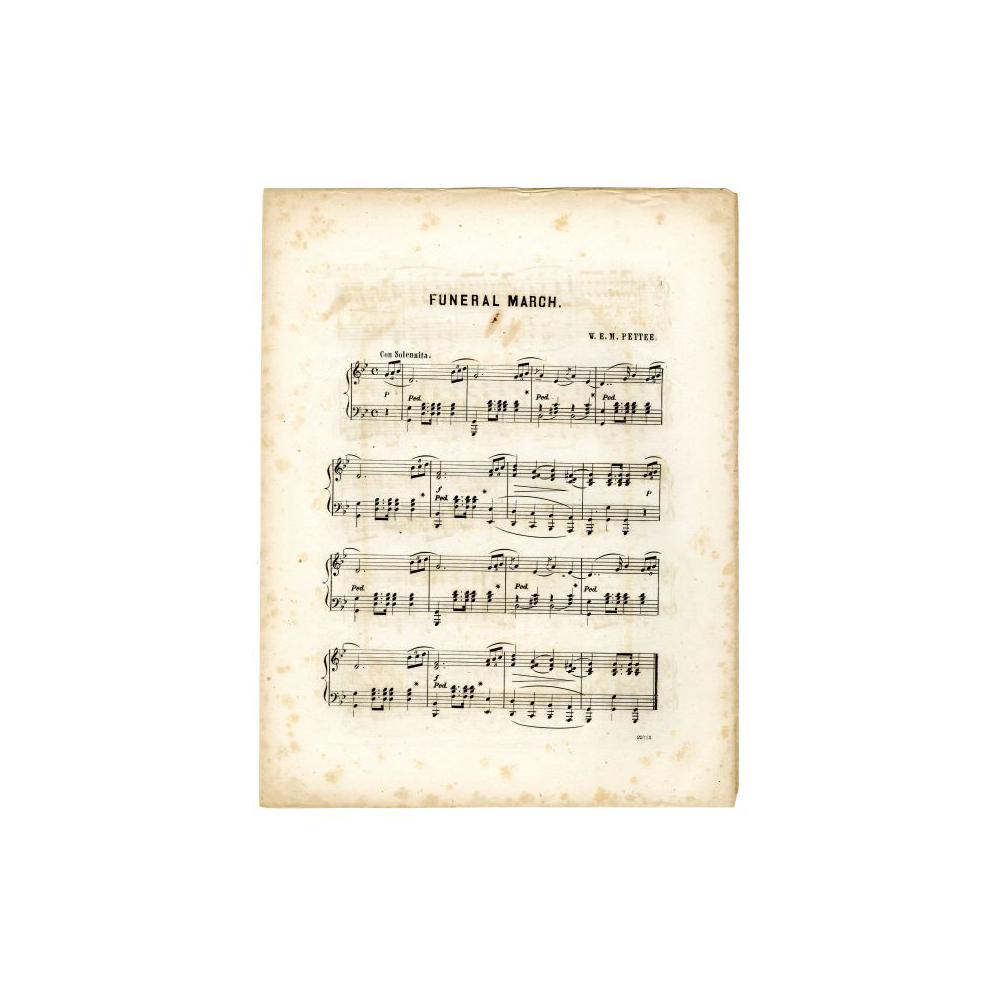 FUNERAL MARCH.
W. E. M. PETTEE.
Con Solennita.
P Ped. * Ped. * Ped.
* f Ped. * P
Ped. * Ped. * Ped.
* f Ped. *